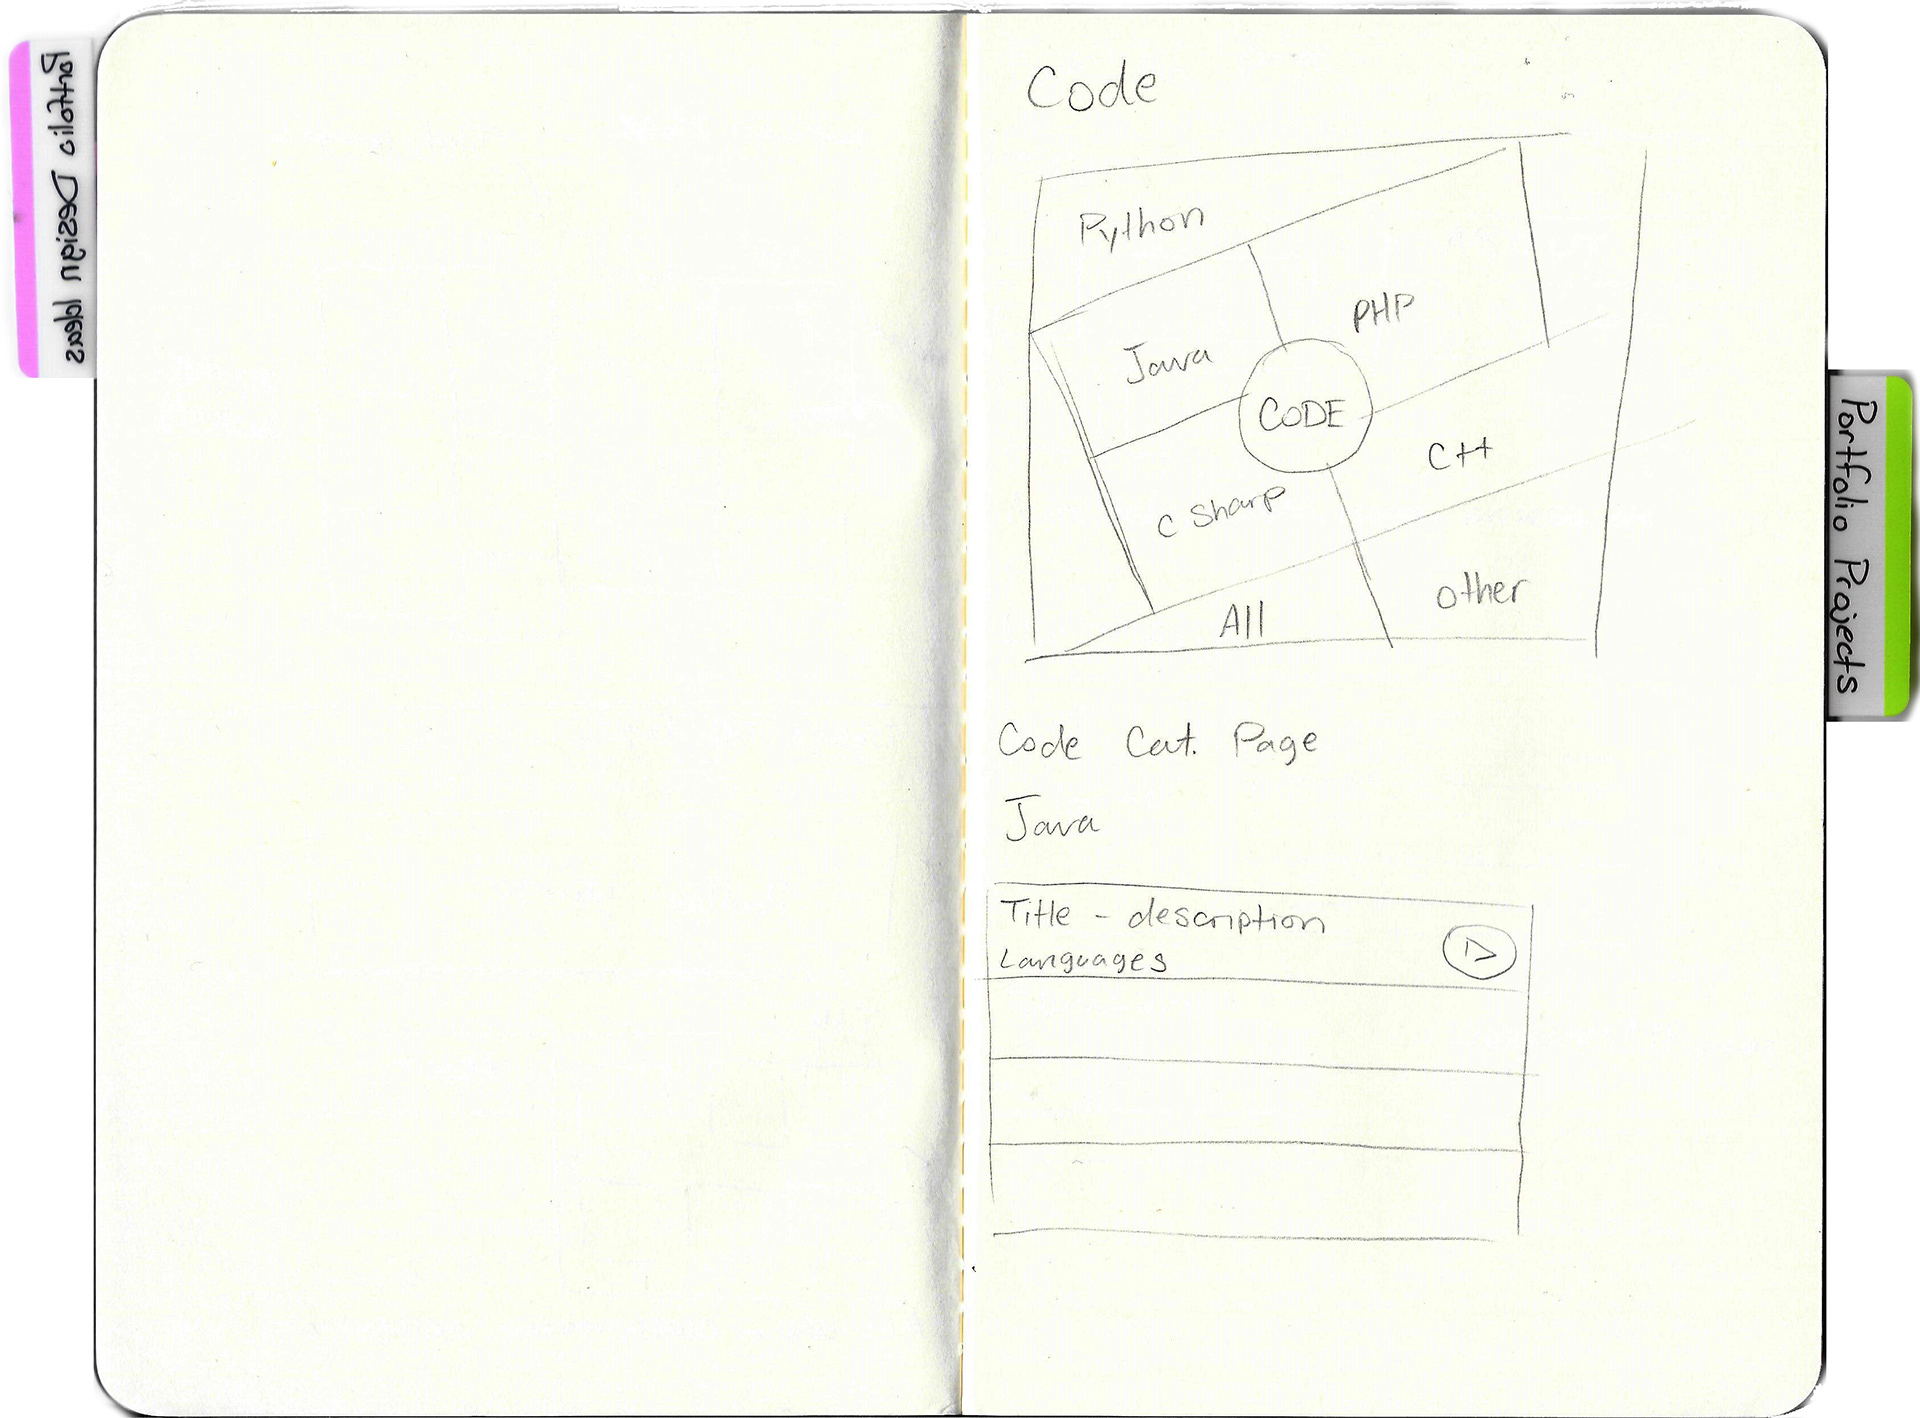 Portfolio Design Ideas
Code
Python
Java
PHP
CODE
C++
C Sharp
All
other
Portfolio Projects
Code Cat. Page
Java
Title - description
Languages